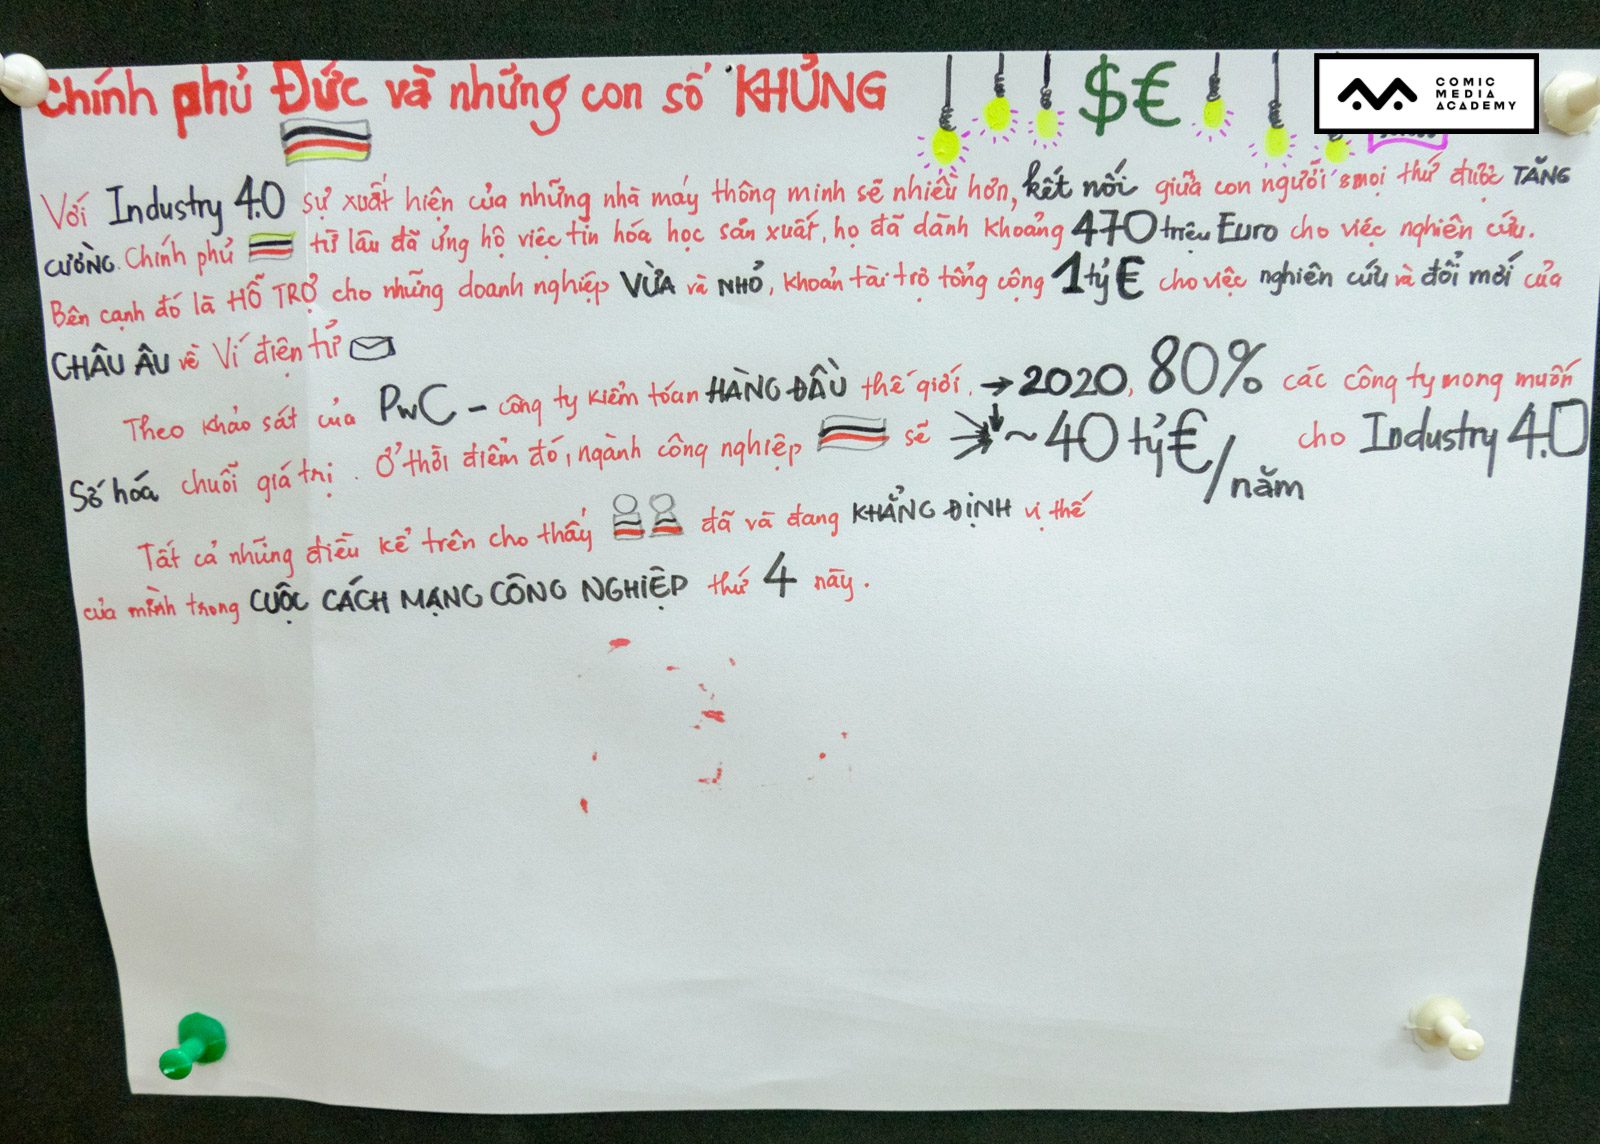 Chính phủ Đức và những con số KHỦNG $€
COMIC
MEDIA
ACADEMY
Với Industry 4.0 sự xuất hiện của những nhà máy thông minh sẽ nhiều hơn, kết nối giữa con người & mọi thứ được TĂNG
CƯỜNG. Chính phủ từ lâu đã ủng hộ việc tin hóa học sản xuất, họ đã dành khoảng 470 triệu Euro cho việc nghiên cứu.
Bên cạnh đó là HỖ TRỢ cho những doanh nghiệp VỪA và NHỎ, khoản tài trợ tổng cộng 1 tỷ € cho việc nghiên cứu và đổi mới của
CHÂU ÂU về Ví điện tử
Theo khảo sát của PwC - công ty kiểm tóan HÀNG ĐẦU thế giới, → 2020, 80% các công ty mong muốn
Số hóa chuỗi giá trị. Ở thời điểm đó, ngành công nghiệp sẽ ~ 40 tỷ €/năm cho Industry 4.0
Tất cả những điều kể trên cho thấy đã và đang KHẲNG ĐỊNH vị thế
của mình trong CUỘC CÁCH MẠNG CÔNG NGHIỆP thứ 4 này.